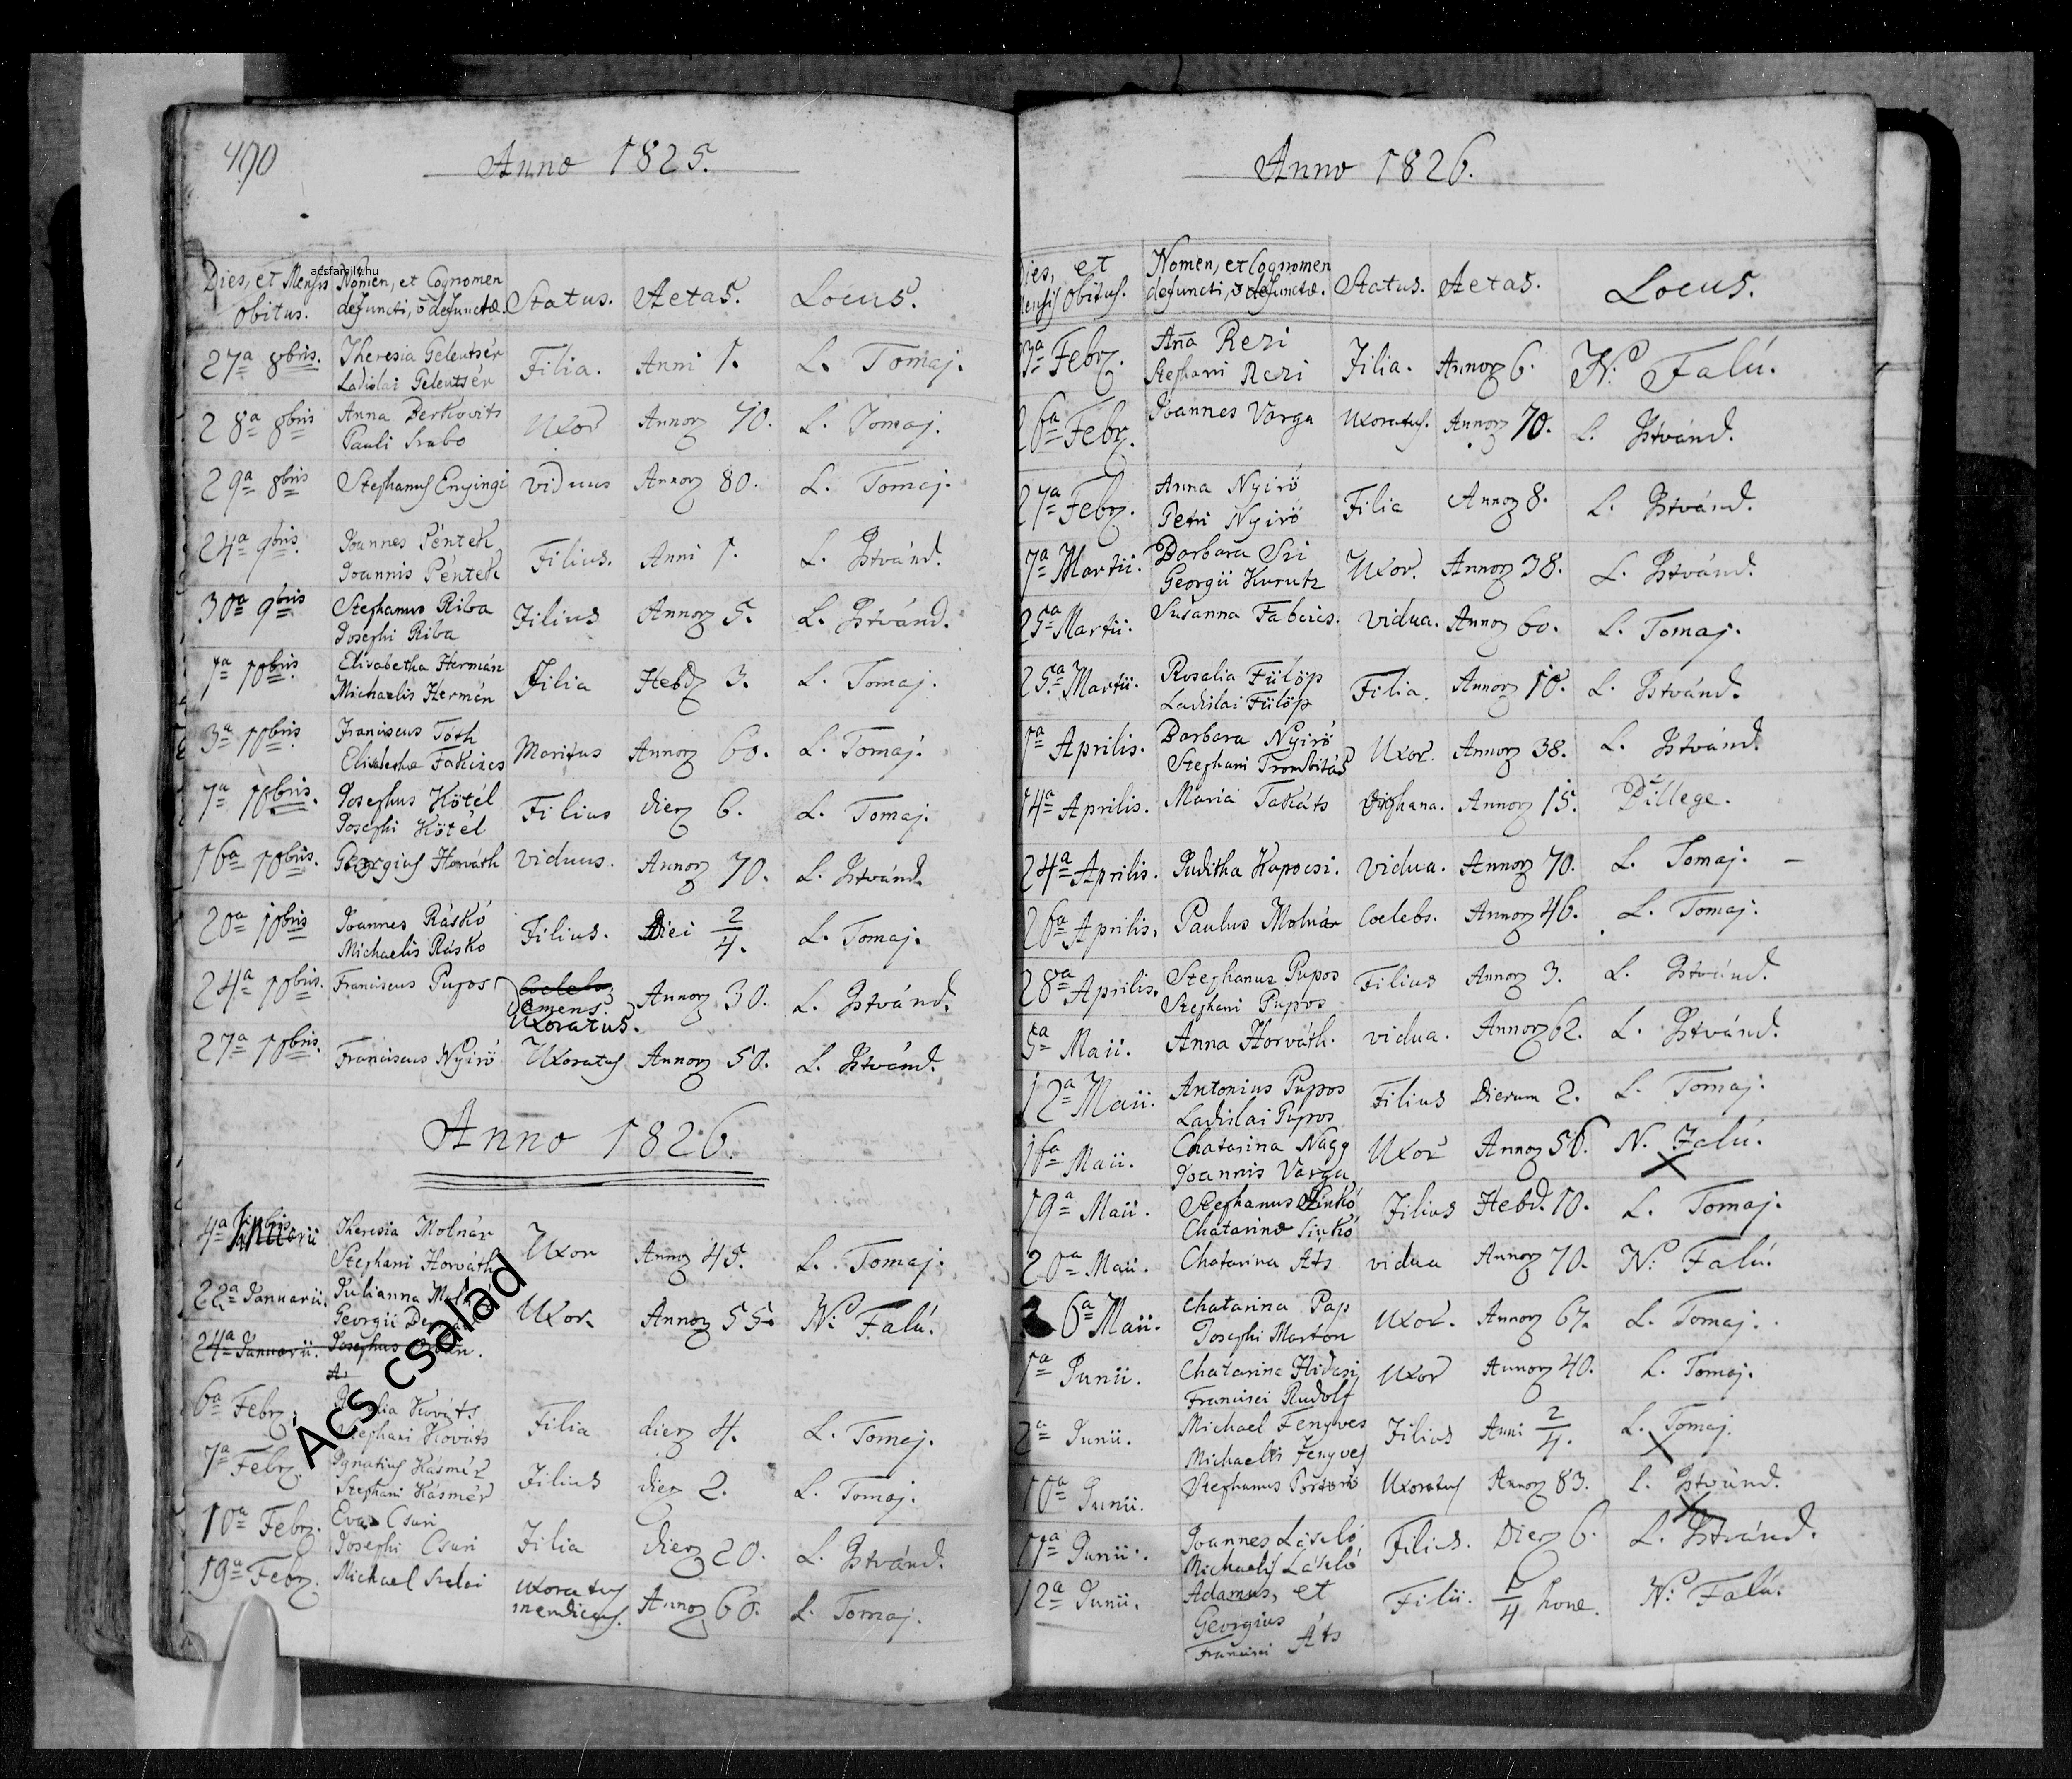 490
Anno 1825.
Dies, et Mensis Nomen, et Cognomen Status. Aetas. Locus.
obitus. defuncti, v̄ defunctæ.
acsfamily.hu
27a 8bris. Theresia Gelentsér Filia. Anni 1. L. Tomaj.
Ladislai Gelentsér
28a 8bris Anna Berkovits Uxor Annorꝫ 70. L. Tomaj.
Pauli Szabo
29a 8bris Stephanus Enyingi viduus Annorꝫ 80. L. Tomaj.
24a 9bris Joannes Péntek Filius. Anni 1. L. Istvánd.
Joannis Péntek
30a 9bris Stephanus Riba Filius Annorꝫ 5. L. Istvánd.
Josephi Riba
1a 10bris. Elisabetha Hermán Filia Hebdꝫ 3. L. Tomaj.
Michaelis Hermán
3a 10bris Franciscus Tóth Maritus Annorꝫ 60. L. Tomaj.
Elisabethæ
7a 10bris. Josephus Kötél Filius dierꝫ 6. L. Tomaj.
Josephi Kötél
16a 10bris. Georgius Horváth viduus. Annorꝫ 70. L. Istvánd.
20a 10bris Joannes Ráskó Filius. Diei 2/4. L. Tomaj.
Michaelis Ráskó
24a 10bris. Franciscus Pupos Annorꝫ 30. L. Istvánd.
amens.
Uxoratus.
27a 10bris. Franciscus Nyirö Uxoratus Annorꝫ 50. L. Istvánd.
Anno 1826.
4a Januarii Theresia Molnár Uxor Annorꝫ 45. L. Tomaj.
Stephani Horváth
22a Januarii. Julianna Uxor. Annorꝫ 55. N. Falú.
Georgii
24a Januarii. Josephus
6a Febrꝫ. Kováts Filia dierꝫ 4. L. Tomaj.
Stephani Kováts
7a Febrꝫ. Ignatius Kásmér Filius dierꝫ 2. L. Tomaj.
Stephani Kásmér
10a Febrꝫ. Eva Csuri Filia dierꝫ 20. L. Istvánd.
Josephi Csuri
19a Febrꝫ. Michael Szalai uxoratus Annorꝫ 60. L. Tomaj.
mendicus.
Ács család
Anno 1826.
Dies, et Nomen, et Cognomen Status. Aetas. Locus.
Mensis obitus. defuncti, v̄ defunctæ.
Febrꝫ. Aña Rezi Filia. Annorꝫ 6. N. Falú.
Stephani Rezi
26a Febr. Joannes Varga Uxoratus. Annorꝫ 70. L. Istvánd.
27a Febrꝫ. Anna Nyirö Filia Annorꝫ 8. L. Istvánd.
Petri Nyirö
7a Martii. Barbara Szi Uxor. Annorꝫ 38. L. Istvánd.
Georgii Kurutz
25a Martii. Susanna vidua. Annorꝫ 60. L. Tomaj.
25a Martii. Rosalia Fülöp Filia. Annorꝫ 10. L. Istvánd.
Ladislai Fülöp
1a Aprilis. Barbara Nyirö Uxor. Annorꝫ 38. L. Istvánd.
Stephani Trombitás
14a Aprilis. Maria Takáts orphana. Annorꝫ 15. Dillege.
24a Aprilis. Juditha Kapocsi. vidua. Annorꝫ 70. L. Tomaj. –
26a Aprilis. Paulus Molnár Coelebs. Annorꝫ 46. L. Tomaj.
28a Aprilis. Stephanus Pupos Filius Annorꝫ 3. L. Istvánd.
Stephani Pupos
5a Maii. Anna Horváth. vidua. Annorꝫ 62. L. Istvánd.
12a Maii. Antonius Pupos Filius Dierum 2. L. Tomaj.
Ladislai Pupos
16a Maii. Chatarina Nagy Uxor Annorꝫ 56. N. Falú.
Joannis Varga
19a Maii. Stephanus Sinkó Filius Hebd. 10. L. Tomaj.
Chatarinæ Sinkó
20a Maii. Chatarina Áts vidua Annorꝫ 70. N. Falú.
26a Maii. Chatarina Pap Uxor. Annorꝫ 67. L. Tomaj.
Josephi Marton
1a Junii. Chatarina Hidasi Uxor Annorꝫ 40. L. Tomaj.
Francisci Rudolf
2a Junii. Michael Fenyves Filius Anni 2/4. L. Tomaj.
Michaelis Fenyves
10a Junii. Stephanus Uxoratus Annorꝫ 83. L. Istvánd.
11a Junii. Joannes László Filius. Dierꝫ 6. L. Istvánd.
Michaelis László
12a Junii. Adamus, et Filii. 1/4 horæ. N. Falú.
Georgius
Francisci Áts